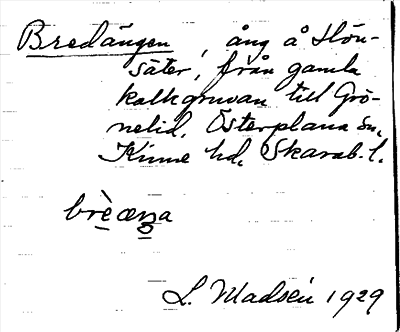 Bredängen, äng å Hön-
säter, från gamla
kalkgruvan till Grö-
nelid, Österplana sn,
Kinne hd, Skarab. l.
brèæŋa
L. Madsén 1929